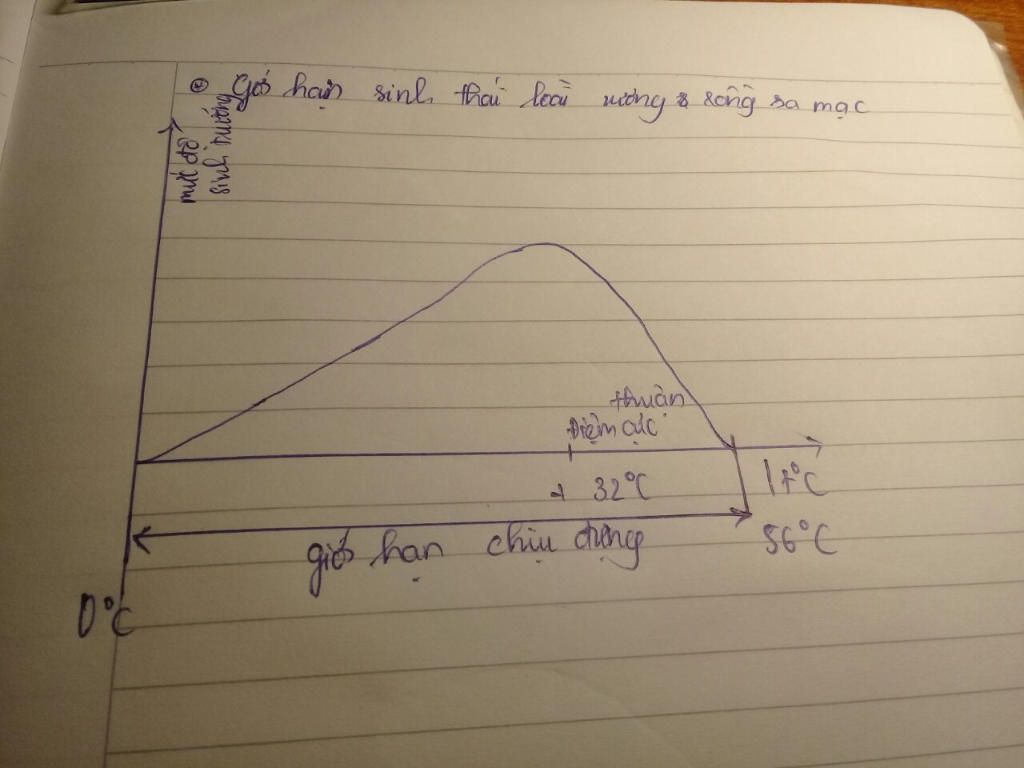 Giới hạn sinh thái loài xương rồng sa mạc
mức độ
sinh trưởng
thuận
Điểm cực
32°C
t°C
giới hạn chịu đựng
56°C
0°C